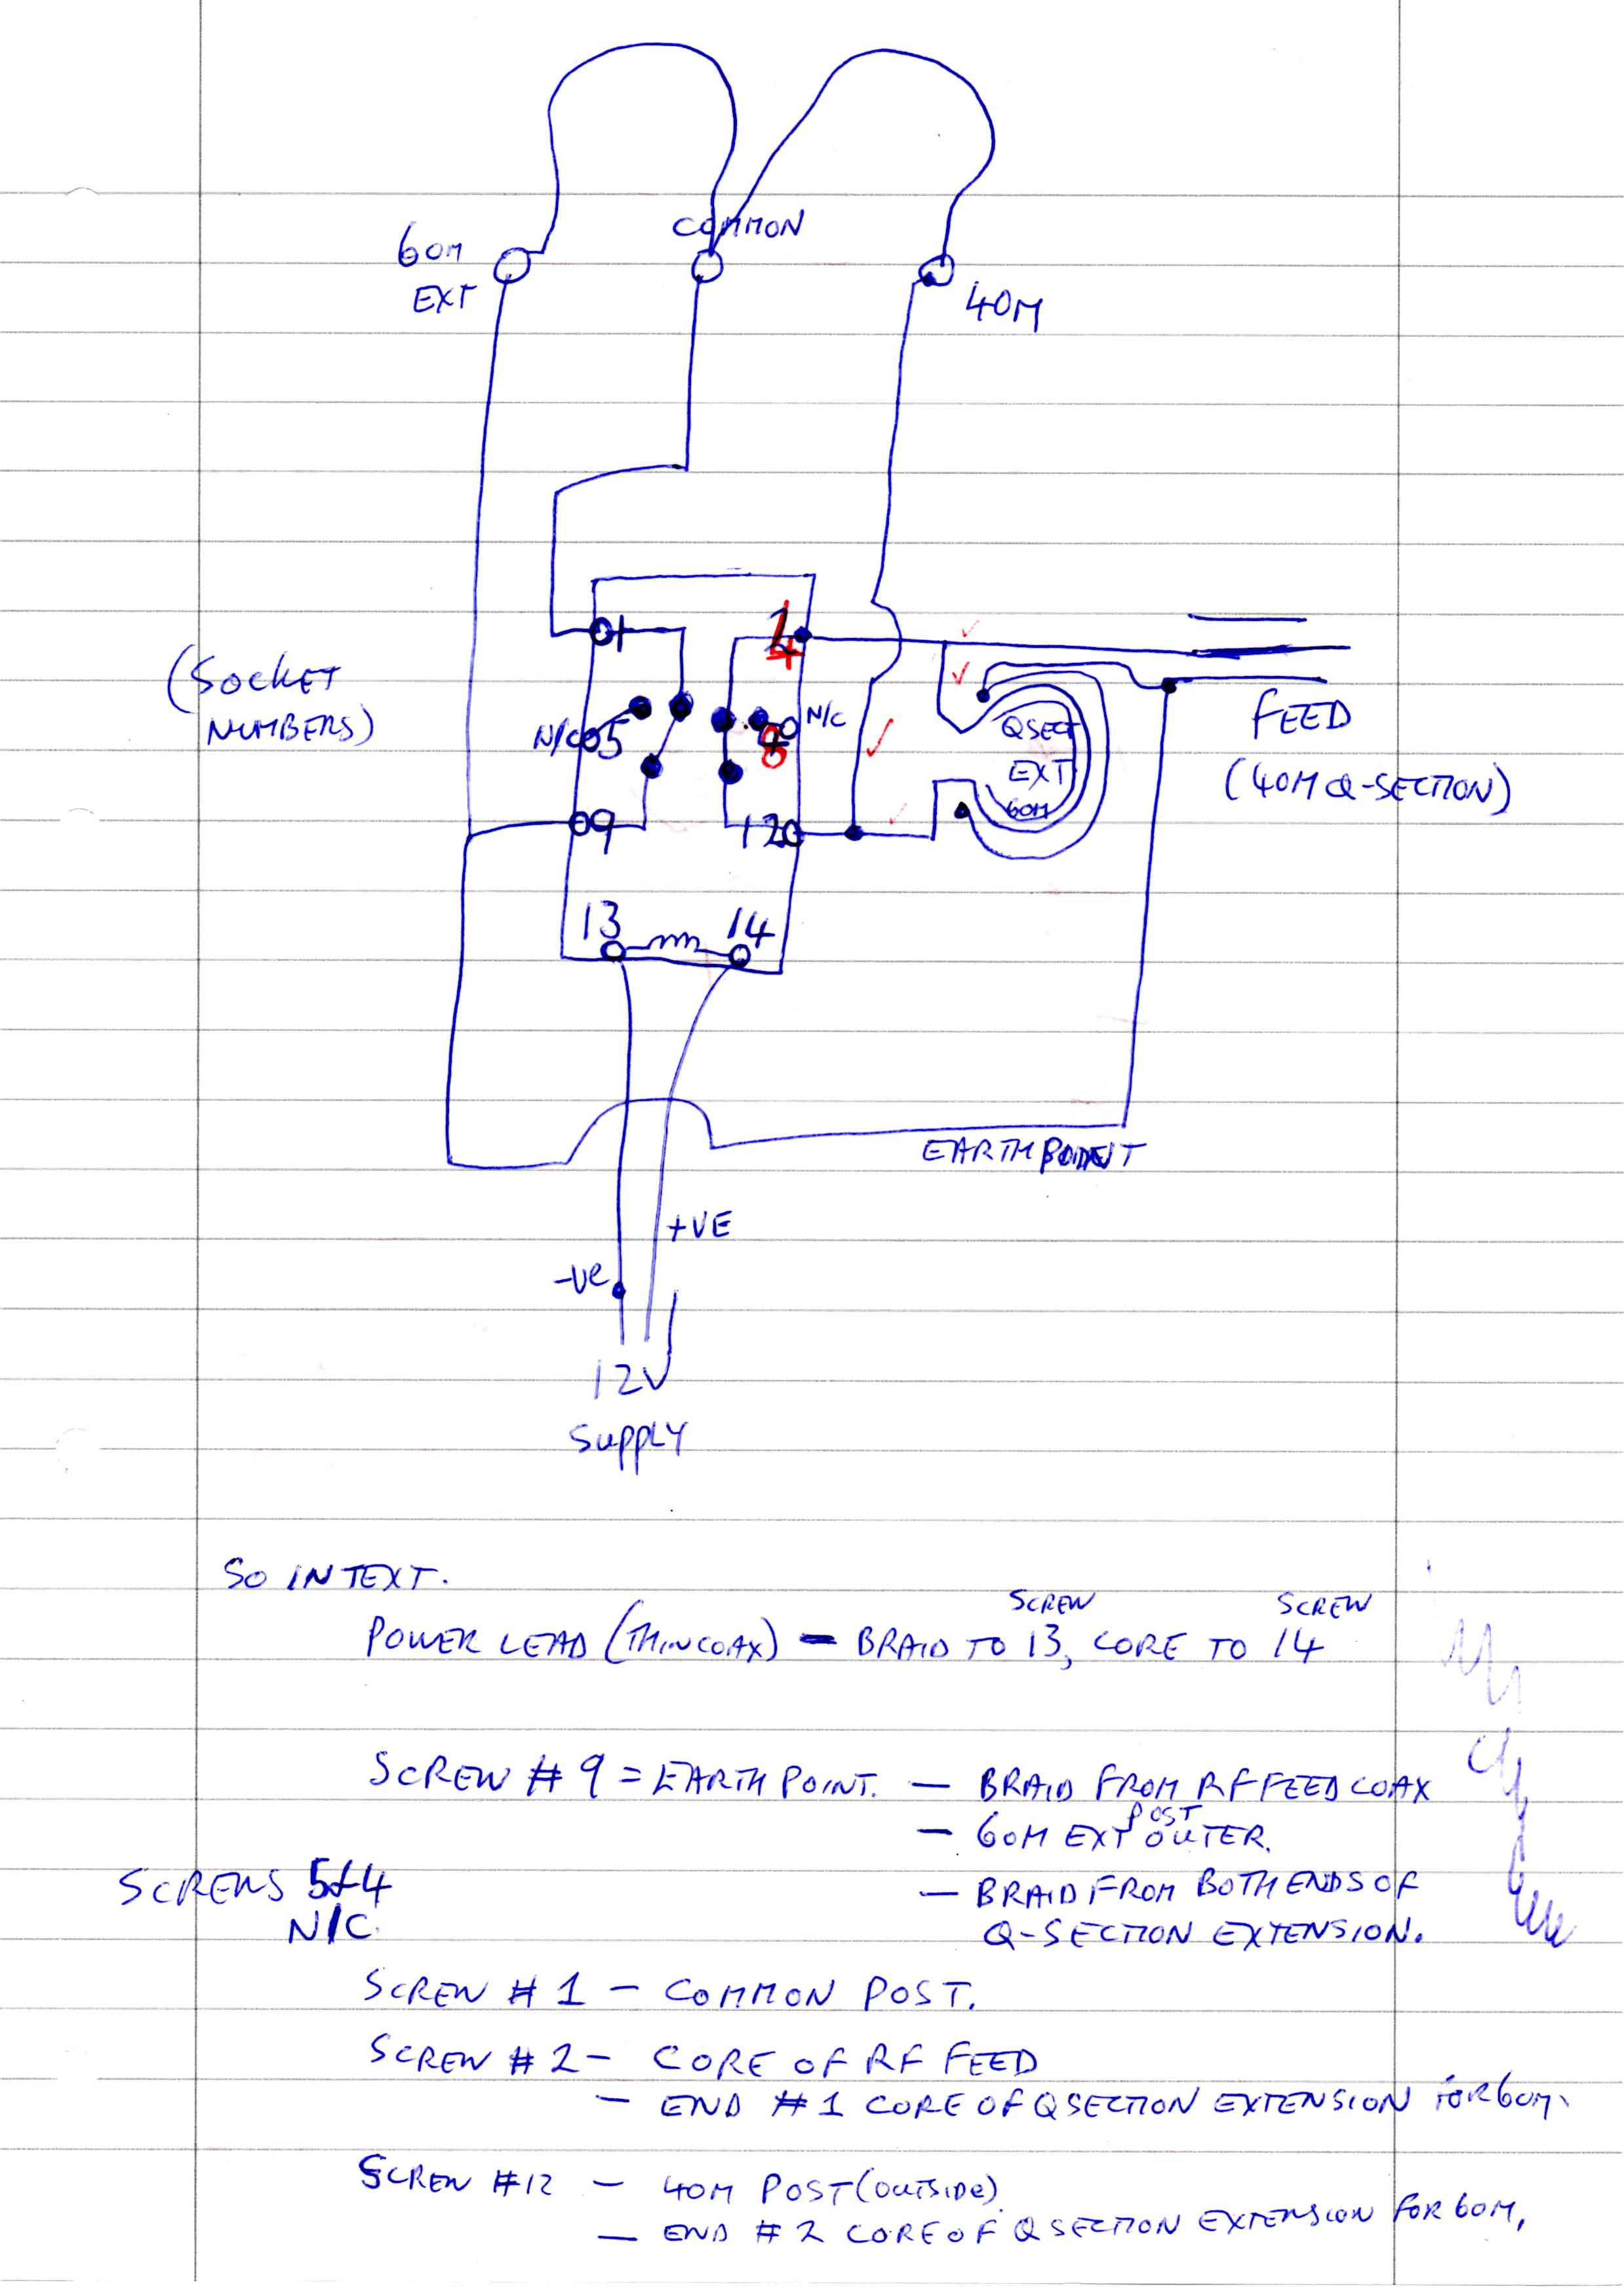 COMMON
60M
EXT
40M
(SOCKET
NUMBERS)
1
4
N/C
5
N/C
8
QSECT
EXT
60M
FEED
(40M Q-SECTION)
9
12
13
14
EARTH POINT
+VE
-VE
12V
SUPPLY
SO IN TEXT.
SCREW SCREW
POWER LEAD (THIN COAX) - BRAID TO 13, CORE TO 14
SCREW # 9 = EARTH POINT. - BRAID FROM RF FEED COAX
POST
- 60M EXT OUTER.
SCREWS 5&4
N/C.
- BRAID FROM BOTH ENDS OF
Q-SECTION EXTENSION.
SCREW # 1 - COMMON POST.
SCREW # 2 - CORE OF RF FEED
- END # 1 CORE OF Q SECTION EXTENSION FOR 60M.
SCREW #12 - 40M POST (OUTSIDE)
- END # 2 CORE OF Q SECTION EXTENSION FOR 60M,